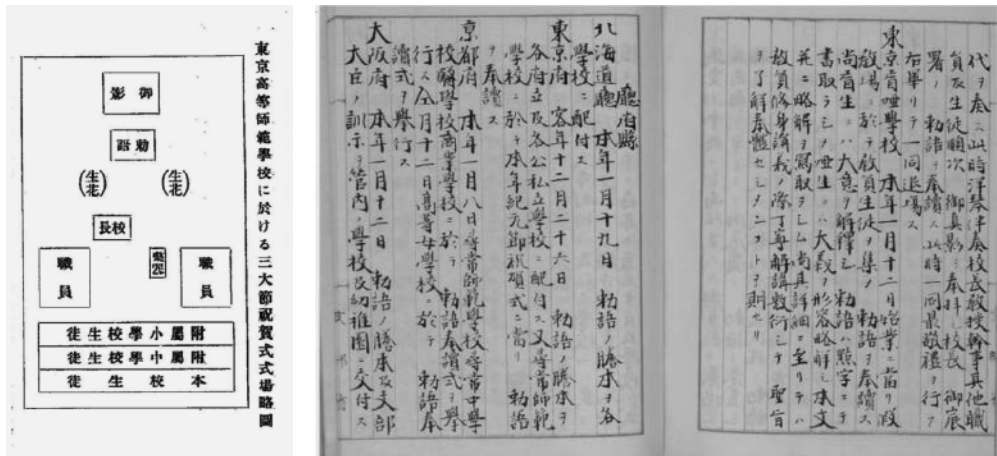 東京高等師範學校に於ける三大節祝賀式式場略圖
御影
勅語
生花
生花
校長
職員
職員
附屬小學校生徒
附屬中學校生徒
本校生徒
代ヲ奏ス此時洋琴伴奏校長教授幹事其他職
員及生徒順次 御真影ニ奉拜シ校長 御宸
署ノ 勅語ヲ奉讀ス此時一同最敬禮ヲ行フ
右畢リテ一同退場ス
東京盲唖學校 本年一月十二日始業ニ當リ假
教場ニ於テ教員生徒ヲ集メ 勅語ヲ奉讀ス
尚盲生ニハ大意ヲ解釋シ 勅語ハ點字ニテ
書取ラシメ唖生ニハ大義ヲ形容略解シ本文
并ニ略解ヲ寫取ラシム尚其詳細ニ至リテハ
教員修身講義ノ際丁寧解講數行シテ 聖旨
ヲ了解奉體セシメンコトヲ期セリ
廳府縣
北海道廳 本年一月十九日 勅語ノ謄本ヲ各
學校ニ配付ス
東京府 客年十二月二十六日 勅語ノ謄本ヲ
各府立及各公私立學校ニ配付ス又尋常師範
學校ニ於テ本年紀元節祝賀式ニ當リ 勅語
ヲ奉讀ス
京都府 本年一月八日尋常師範學校尋常中學
校醫學校商業學校ニ於テ 勅語奉讀式ヲ擧
行ス仝月十二日高等女學校ニ於テ 勅語奉
讀式ヲ擧行ス
大阪府 本年一月十二日 勅語ノ謄本及文部
大臣ノ訓示ヲ管内ノ學校及幼稚園ニ交付ス